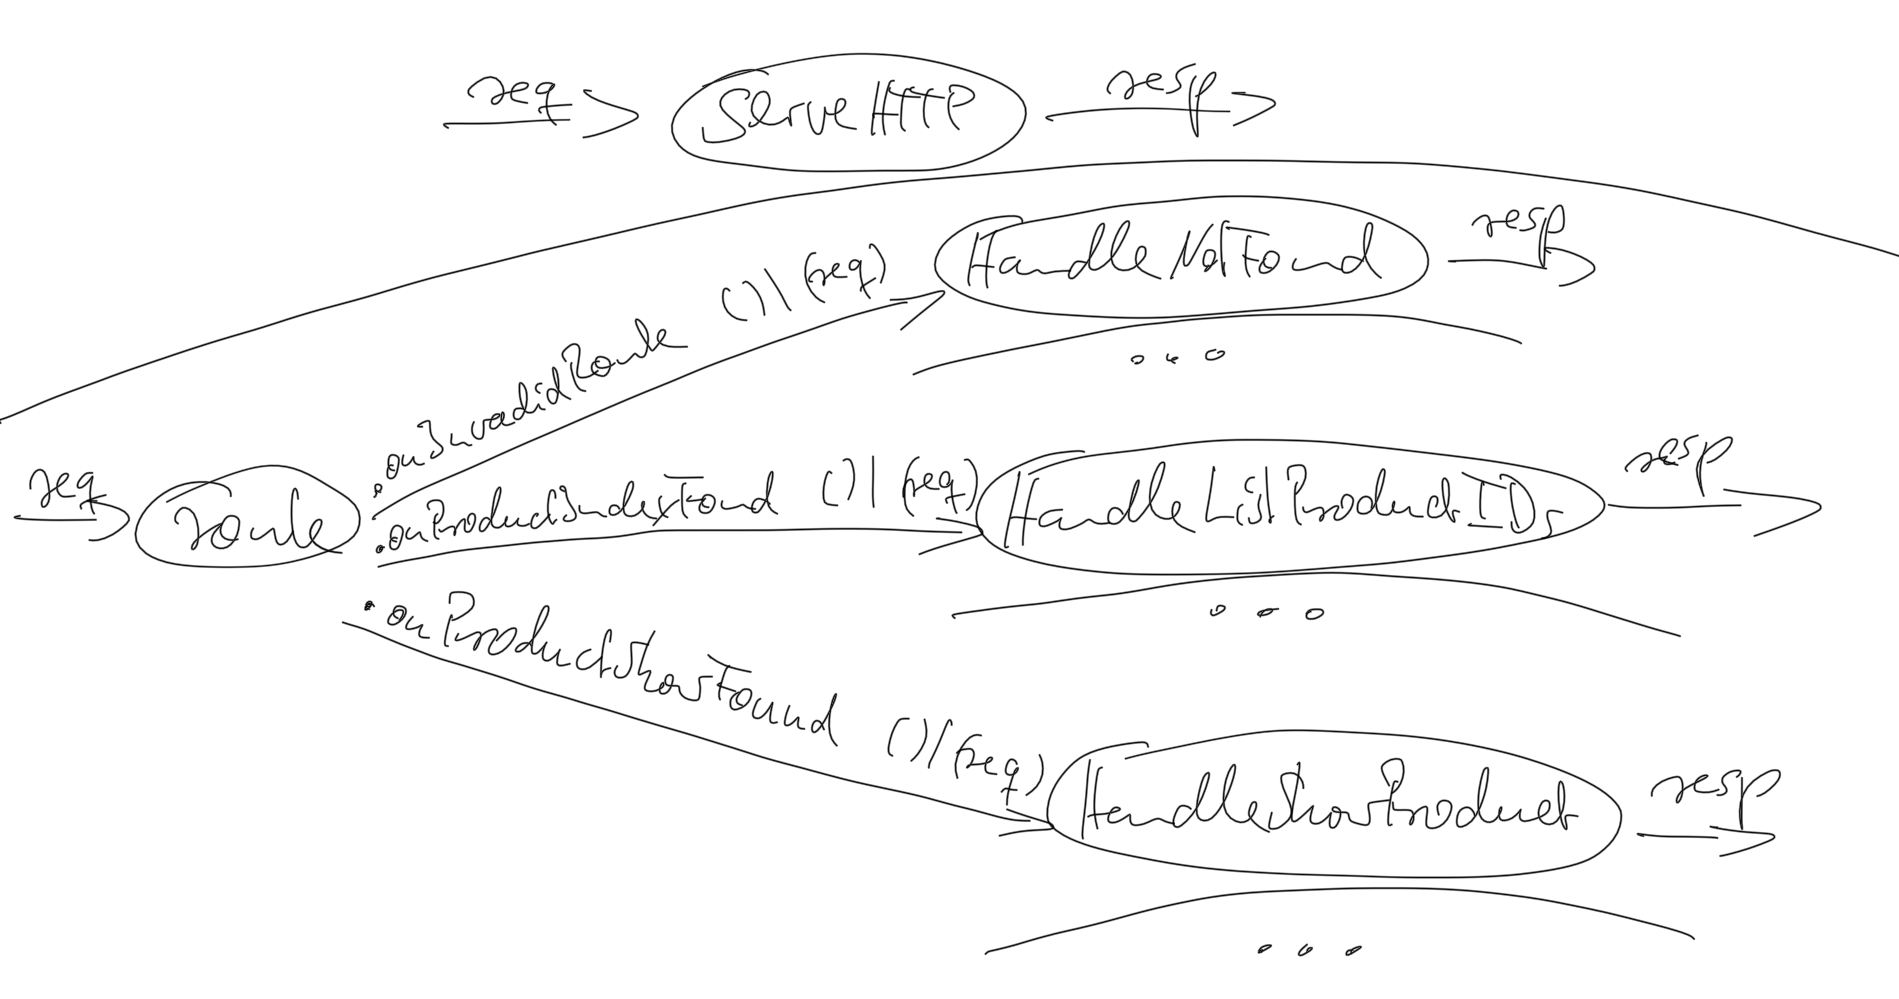 req ServeHTTP resp
HandleNotFound resp
.onInvalidRoute ()|(req)
...
req route
.onProductIndexFound ()|(req) HandleListProductIDs resp
...
.onProductShowFound ()|(req)
HandleShowProduct resp
...